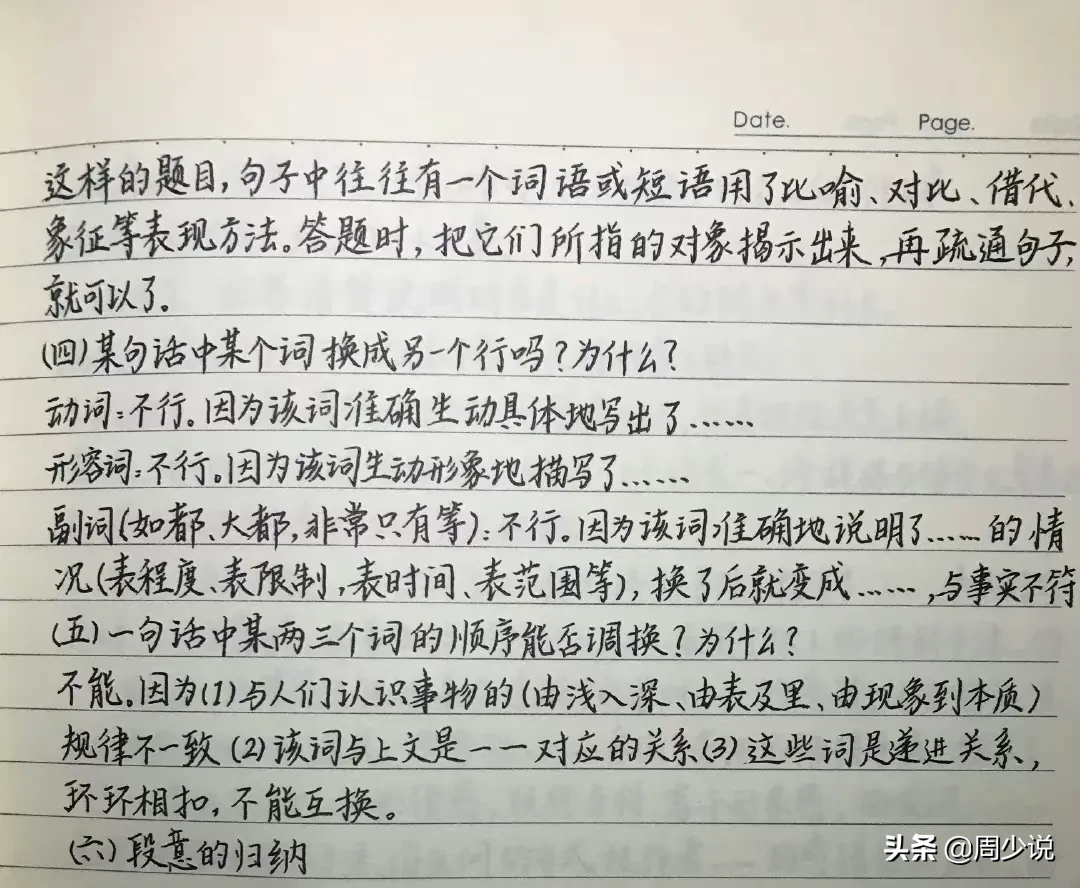 Date. Page.
这样的题目,句子中往往有一个词语或短语用了比喻、对比、借代、
象征等表现方法。答题时,把它们所指的对象揭示出来,再疏通句子,
就可以了。
(四)某句话中某个词换成另一个行吗?为什么?
动词:不行。因为该词准确生动具体地写出了……
形容词:不行。因为该词生动形象地描写了……
副词(如都、大都,非常只有等):不行。因为该词准确地说明了……的情
况(表程度、表限制,表时间、表范围等),换了后就变成……,与事实不符
(五)一句话中某两三个词的顺序能否调换?为什么?
不能。因为(1)与人们认识事物的(由浅入深、由表及里、由现象到本质)
规律不一致(2)该词与上文是一一对应的关系(3)这些词是递进关系,
环环相扣,不能互换。
(六)段意的归纳
头条@周少说